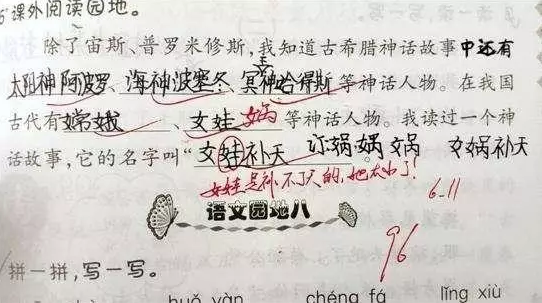 课外阅读园地。
除了宙斯、普罗米修斯,我知道古希腊神话故事中还有
太阳神阿波罗、海神波塞冬、冥神哈得斯等神话人物。在我国
古代有嫦娥、女娃 娲等神话人物。我读过一个神
话故事,它的名字叫“女娃补天 订娲娲 女娲 女娲补天
女娃是补不了天的,她太小了!
6.11
语文园地八
96
拼一拼,写一写。
huǒ yàn chéng fá lǐng xiù